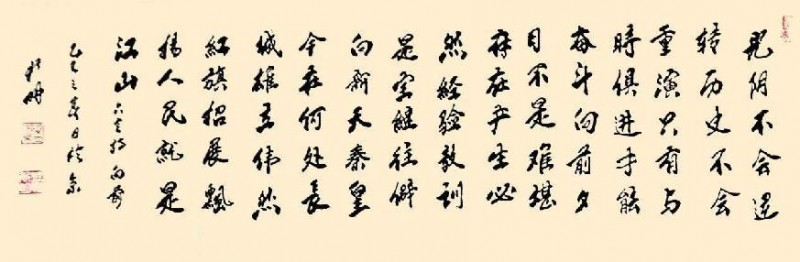 光阴不会逆
转历史不会
重演只有与
时俱进才能
奋斗向前夕
目不是难堪
存在产生必
然经验教训
是宝继往僻
向新天秦皇
今在何处长
城雄立伟然
红旗招展飘
扬人民就是
江山 六言诗 向前
乙巳之春日於京